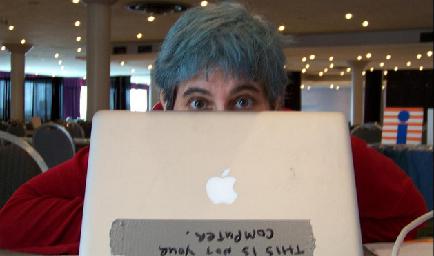 THIS IS NOT YOUR
COMPUTER.
i